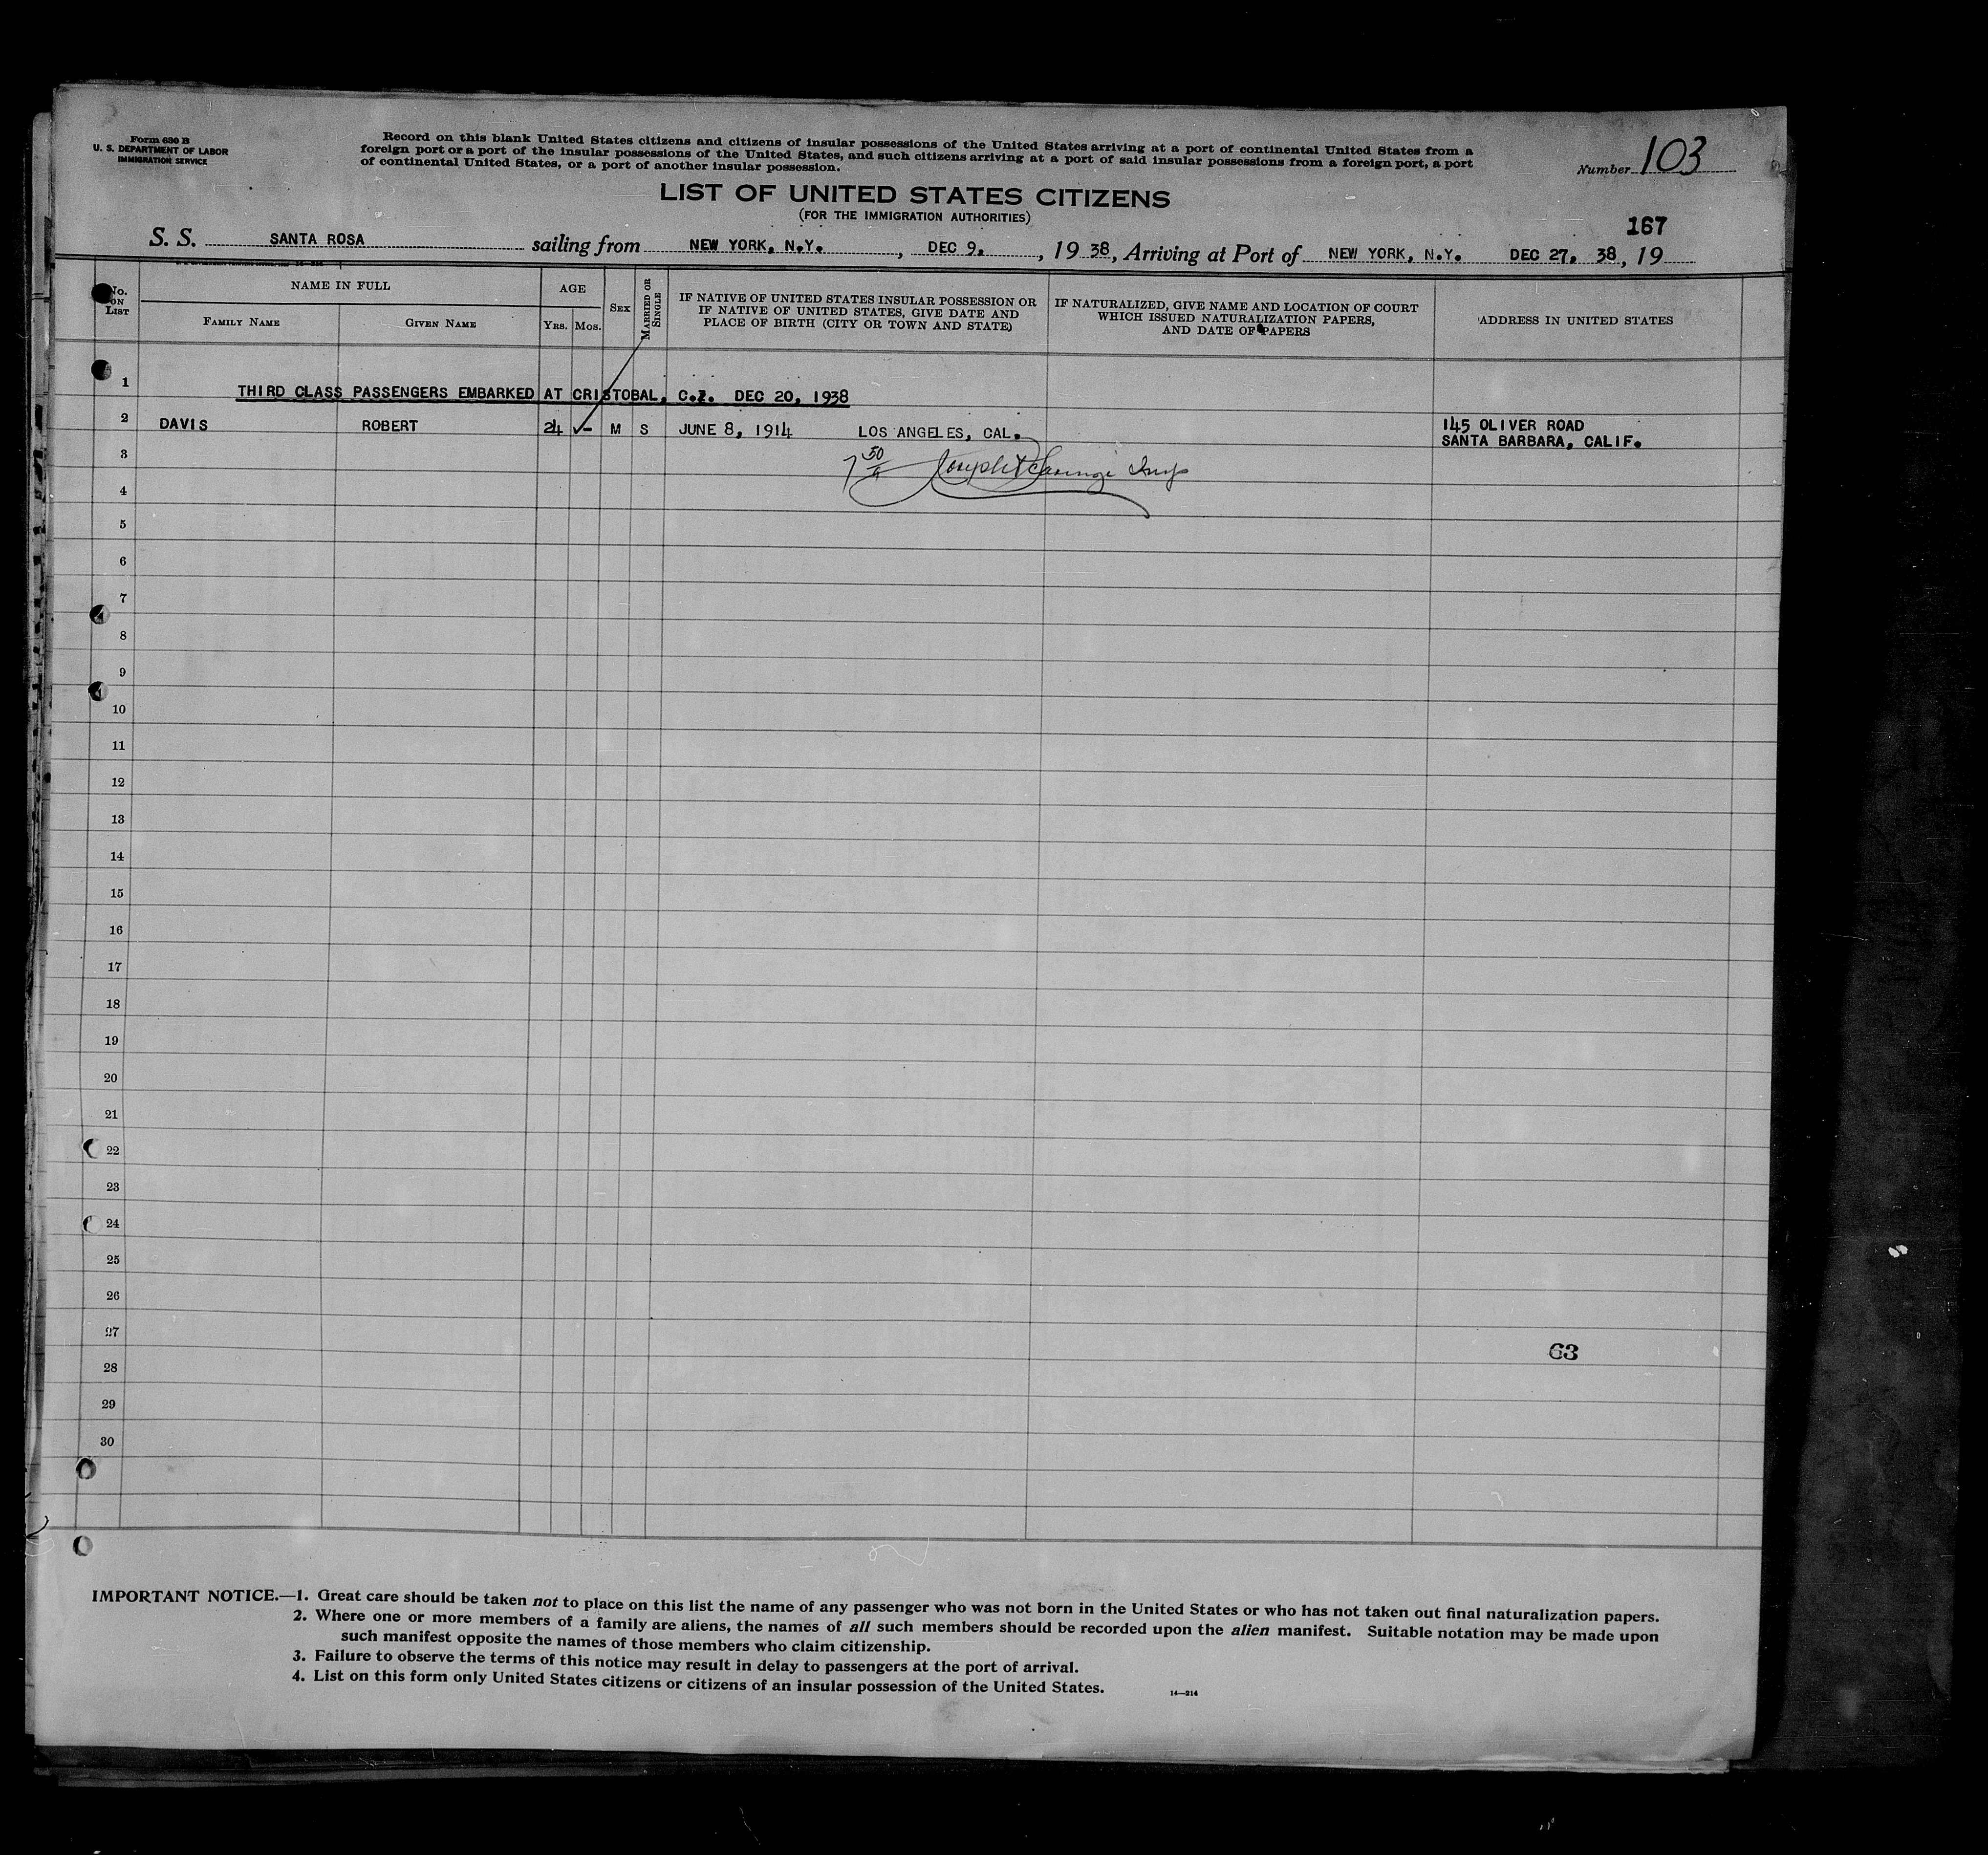 Form 630 B
U. S. DEPARTMENT OF LABOR
IMMIGRATION SERVICE
Record on this blank United States citizens and citizens of insular possessions of the United States arriving at a port of continental United States from a
foreign port or a port of the insular possessions of the United States, and such citizens arriving at a port of said insular possessions from a foreign port, a port
of continental United States, or a port of another insular possession.
Number 103
LIST OF UNITED STATES CITIZENS
(FOR THE IMMIGRATION AUTHORITIES)
167
S. S. SANTA ROSA sailing from NEW YORK, N.Y. , DEC 9, , 19 38, Arriving at Port of NEW YORK, N.Y. DEC 27, 38, 19
No. ON LIST
NAME IN FULL
FAMILY NAME
GIVEN NAME
AGE
YRS. MOS.
SEX
MARRIED OR SINGLE
IF NATIVE OF UNITED STATES INSULAR POSSESSION OR
IF NATIVE OF UNITED STATES, GIVE DATE AND
PLACE OF BIRTH (CITY OR TOWN AND STATE)
IF NATURALIZED, GIVE NAME AND LOCATION OF COURT
WHICH ISSUED NATURALIZATION PAPERS,
AND DATE OF PAPERS
ADDRESS IN UNITED STATES
1
THIRD CLASS PASSENGERS EMBARKED AT CRISTOBAL, C.Z. DEC 20, 1938
2 DAVIS ROBERT 24 M S JUNE 8, 1914 LOS ANGELES, CAL. 145 OLIVER ROAD
SANTA BARBARA, CALIF.
3
4
5
6
7
8
9
10
11
12
13
14
15
16
17
18
19
20
21
22
23
24
25
26
27
63
28
29
30
IMPORTANT NOTICE.—1. Great care should be taken not to place on this list the name of any passenger who was not born in the United States or who has not taken out final naturalization papers.
2. Where one or more members of a family are aliens, the names of all such members should be recorded upon the alien manifest. Suitable notation may be made upon
such manifest opposite the names of those members who claim citizenship.
3. Failure to observe the terms of this notice may result in delay to passengers at the port of arrival.
4. List on this form only United States citizens or citizens of an insular possession of the United States.
14—214